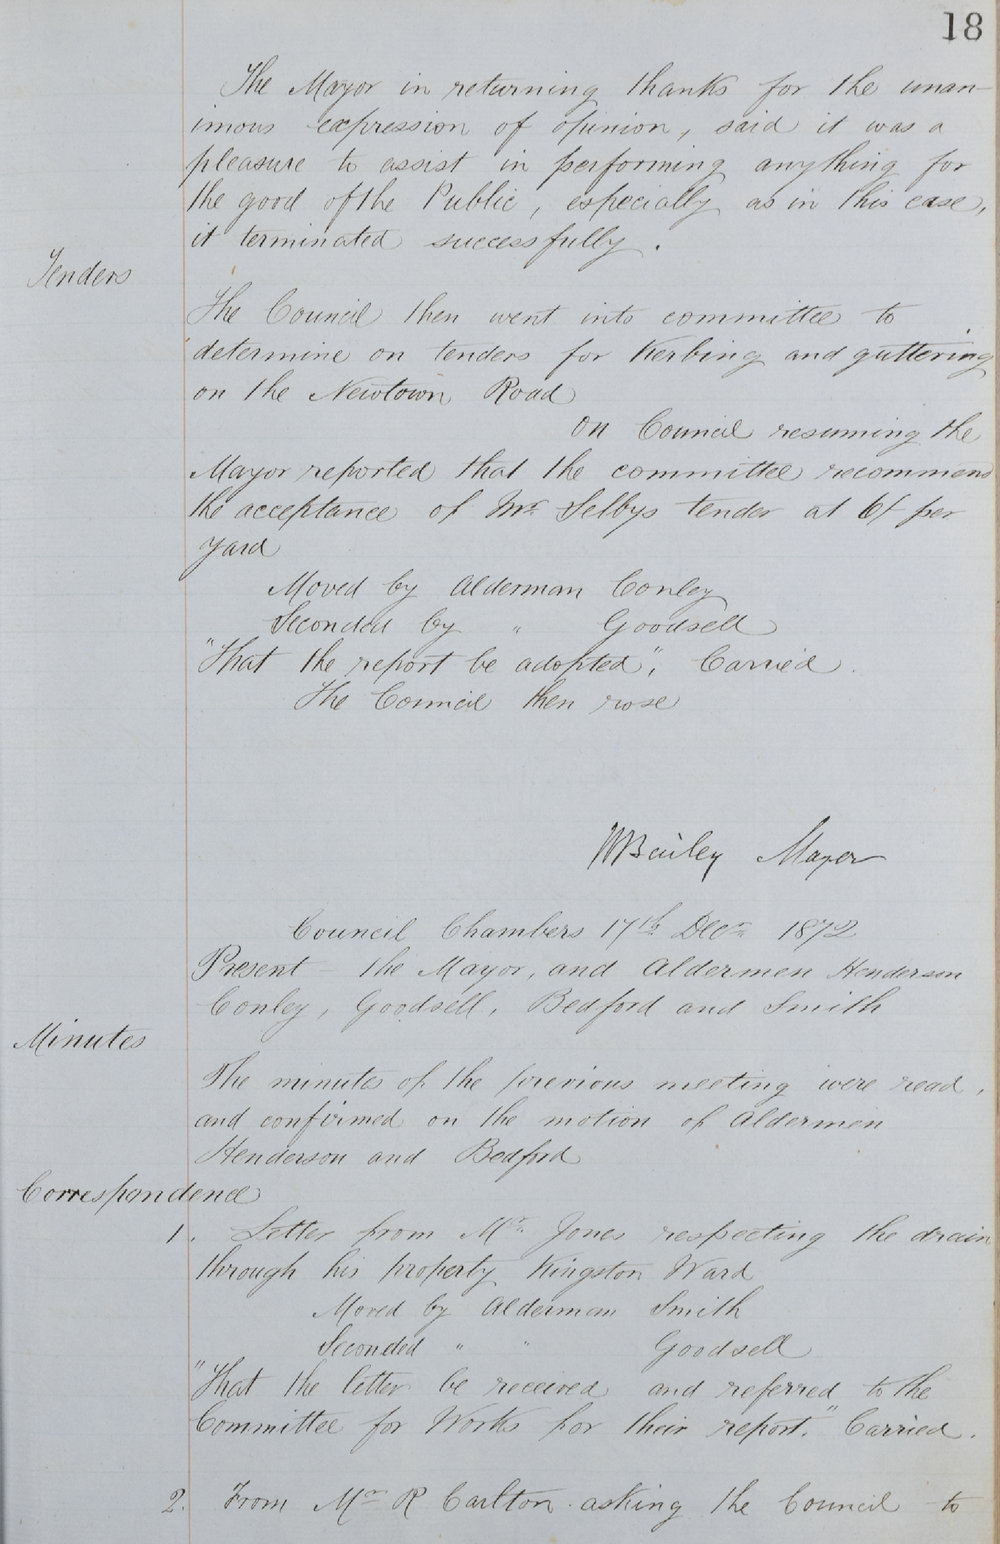 18
The Mayor in returning thanks for the unan-
imous expression of opinion, said it was a
pleasure to assist in performing anything for
the good of the Public, especially as in this case,
it terminated successfully.
Tenders
The Council then went into committee to
determine on tenders for Kerbing and guttering
on the Newtown Road
On Council resuming the
Mayor reported that the committee recommend
the acceptance of Mr Selbys tender at 6/ per
yard
Moved by Alderman Conley
Seconded by " Goodsell
"That the report be adopted", Carried.
The Council then rose
WBailey Mayor
Council Chambers 17th Decr 1872
Present - the Mayor, and Aldermen Henderson
Conley, Goodsell, Bedford and Smith
Minutes
The minutes of the previous meeting were read,
and confirmed on the motion of Aldermen
Henderson and Bedford
Correspondence
1. Letter from Mr Jones respecting the drain
through his property Kingston Ward
Moved by Alderman Smith
Seconded " " Goodsell
"That the letter be received and referred to the
Committee for Works for their report." Carried.
2. From Mr R Carlton asking the Council to